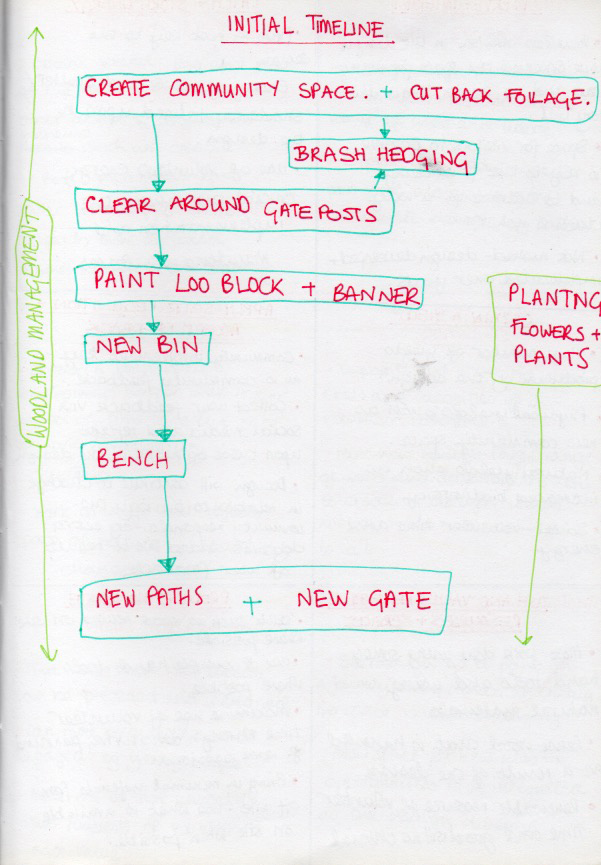 INITIAL TIMELINE
CREATE COMMUNITY SPACE. + CUT BACK FOILAGE.
BRASH HEDGING
CLEAR AROUND GATEPOSTS
PAINT LOO BLOCK + BANNER
NEW BIN
BENCH
NEW PATHS + NEW GATE
WOODLAND MANAGEMENT
PLANTNG
FLOWERS +
PLANTS